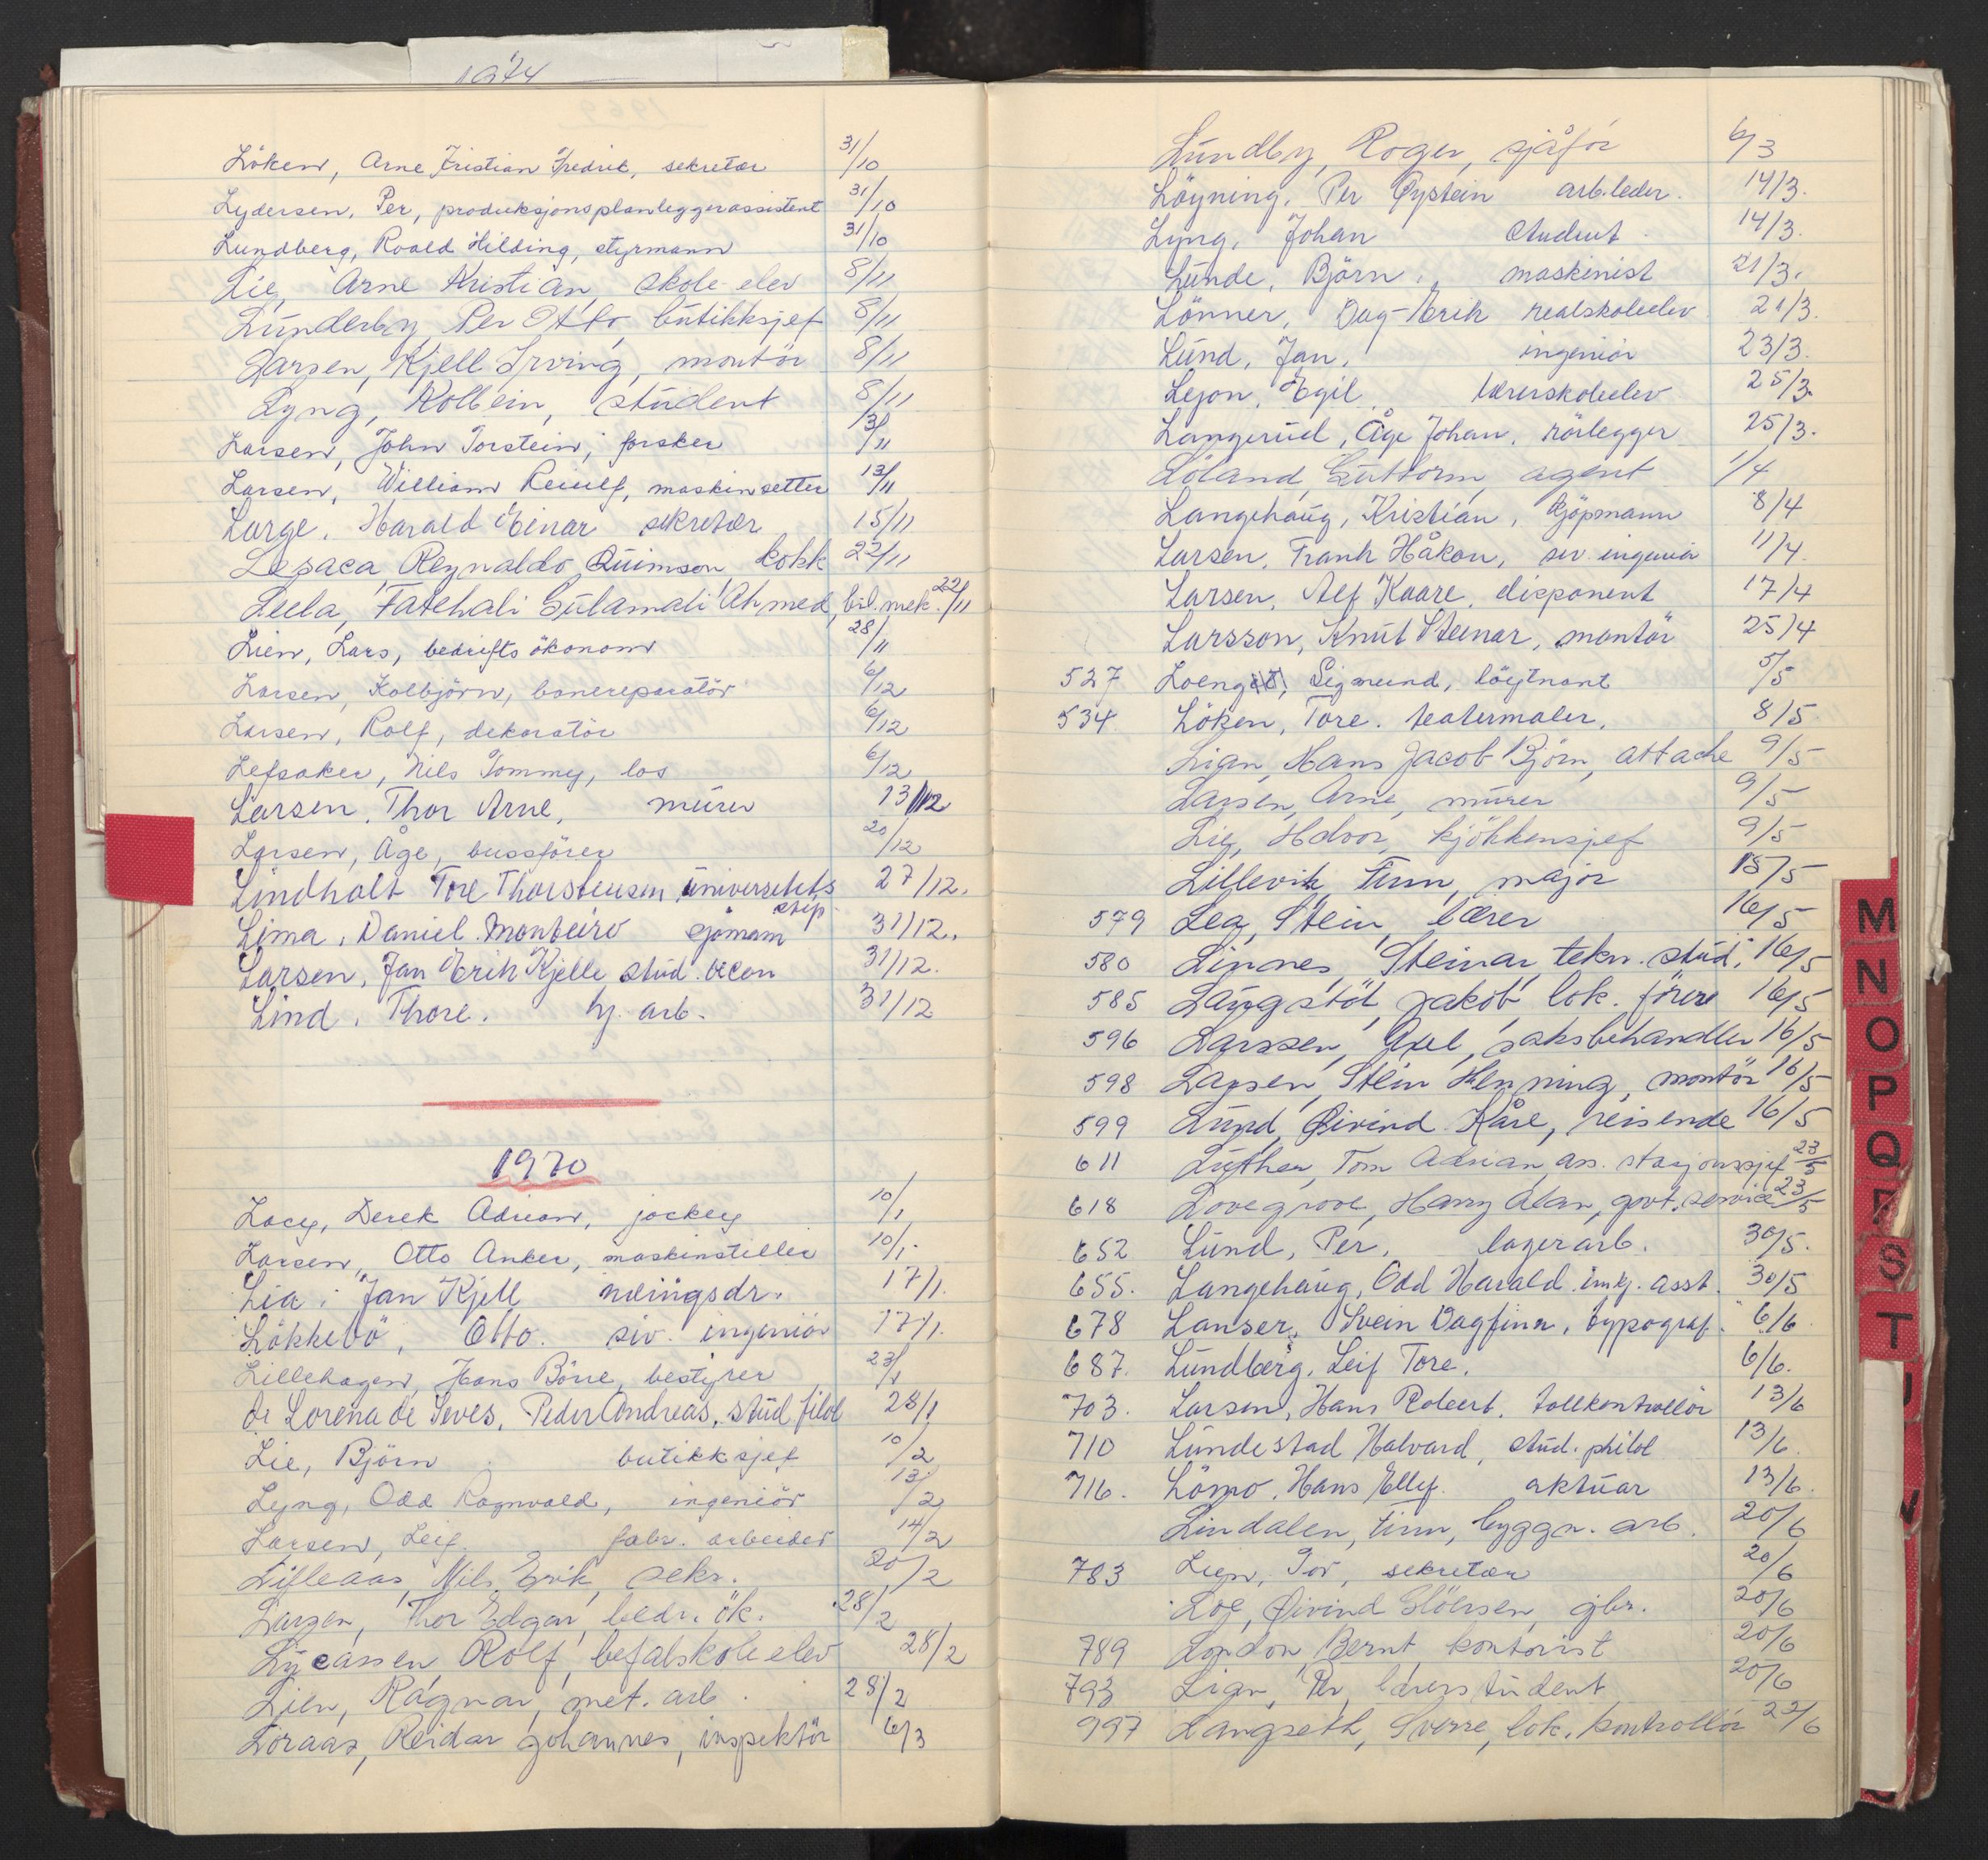 1974
Löken, Arne Kristian Fredrik, sekretær 31/10
Lydersen, Per, produksjonsplanleggerassistent 31/10
Lundberg, Roald Hilding, styrmann 31/10
Lie, Arne Kristian, skole elev 8/11
Lunderby, Per Otto, butikksjef 8/11
Larsen, Kjell Irving, montör 8/11
Lyng, Kolbein, student 8/11
Larsen, John Torstein, forsker 13/11
Larsen, William Reiulf, maskinsetter 13/11
Large, Harald Einar sekretær 15/11
Lesaca, Reynaldo Quimson kokk 22/11
Leela, Fatehali Gulamali Ahmed, bil.mek. 22/11
Lien, Lars, bedriftsökonom 28/11
Larsen, Kolbjörn, banereparatör 6/12
Larsen, Rolf, dekoratör 6/12
Lefsaker, Nils Tommy, los 6/12
Larsen, Thor Arne, murer 13/12
Larsen, Åge, bussförer 20/12
Lindholt Tore Thorstensen, universitets stip. 27/12.
Lima, Daniel Monteiro sjömann 31/12.
Larsen, Jan Erik Kjelle stud. oecon 31/12.
Lind, Thore. hj. arb. 31/12
1970
Lacy, Derek Adrian, jockey 10/1
Larsen, Otto Anker, maskinstiller 10/1.
Lia, Jan Kjell næringsdr. 17/1.
Lökkebö, Otto. siv. ingeniör 17/1.
Lillehagen, Hans Börre, bestyrer 23/1
de Lorena de Seves, Peder Andreas, stud filol 28/1
Lie, Björn butikksjef 10/2
Lyng, Odd Ragnvald, ingeniör 13/2
Larsen, Leif. fabr. arbeider 14/2
Lifleaas, Nils Erik, sekr. 20/2
Larsen, Thor Edgar, bedr. ök. 28/2
Lycassen, Rolf, befalskoleelev 28/2
Lien, Ragnar, met. arb. 28/2
Loraas, Reidar Johannes, inspektör 6/3
Lundby, Roger, sjåför 6/3
Löyning, Per Øystein arb.leder. 14/3.
Lyng, Johan student. 14/3.
Lunde, Björn, maskinist 21/3.
Lönner, Dag-Erik realskoleelev 21/3.
Lund, Jan, ingeniör 23/3.
Lejon, Egil, lærerskoleelev 25/3.
Langerud, Åge Johan, rörlegger 25/3.
Löland, Guttorm, agent 1/4
Langehaug, Kristian, kjöpmann 8/4
Larsen, Frank Håkon, siv. ingeniör 11/4.
Larsen, Alf Kaare, disponent 17/4
Larsson, Knut Steinar, montör 25/4
527 Loeng, Sigmund, löytnant 5/5
534 Löken, Tore. teatermaler, 8/5
Lian, Hans Jacob Björn, attache 9/5
Larsen, Arne, murer 9/5
Lie, Halvor, kjökkensjef 9/5
Lillevik, Finn, major 15/5
579 Lea, Stein, lærer 16/5
580 Linnes, Steinar, tekn. stud. 16/5
585 Laugstöl, Jakob, lok. förer 16/5
596 Larssen, Axel, saksbehandler 16/5
598 Larsen, Stein Henning, montör 16/5
599 Lund, Øivind Kåre, reisende 16/5
611 Luther, Tom Adrian, ass. stasjonssjef 23/5
618 Lovegrove, Harry Alan, govt. service 23/5
652 Lund, Per, lagerarb. 30/5.
655. Langehaug, Odd Harald innkj. asst. 30/5
678 Lanser, Svein Dagfinn, typograf. 6/6.
687. Lundberg, Leif Tore. 6/6.
703. Larsen, Hans Robert, tollkontrollör 13/6
710 Lundestad Halvard, stud. philol 13/6.
716. Lömo, Hans Ellef. aktuar 13/6.
Lindalen, Finn, byggn. arb. 20/6
783 Lien, Tor, sekretær 20/6
Loe, Øivind Glöersen, gbr. 20/6
789 London, Bernt, kontorist 20/6
793 Lian, Per, lærerstudent 20/6
997 Langseth, Sverre, lok. kontrollör 22/6
M
N
O
P
Q
R
S
T
U